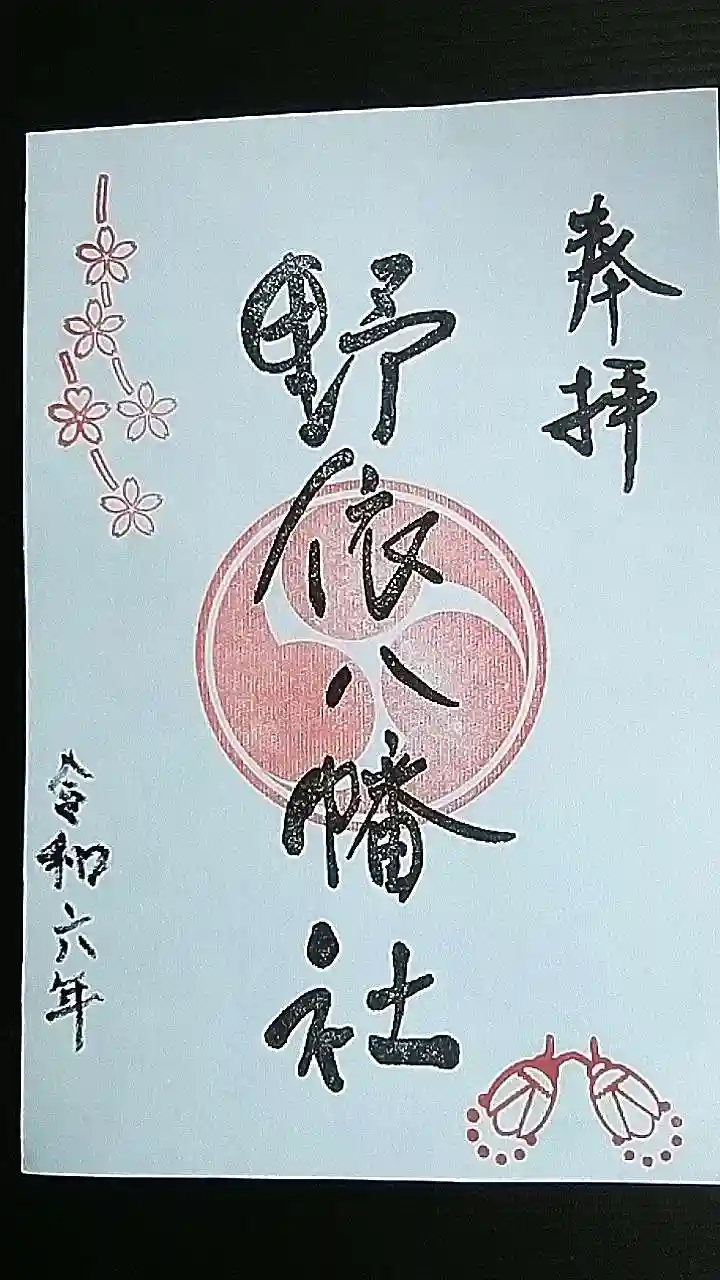 奉拝
野依八幡社
令和六年